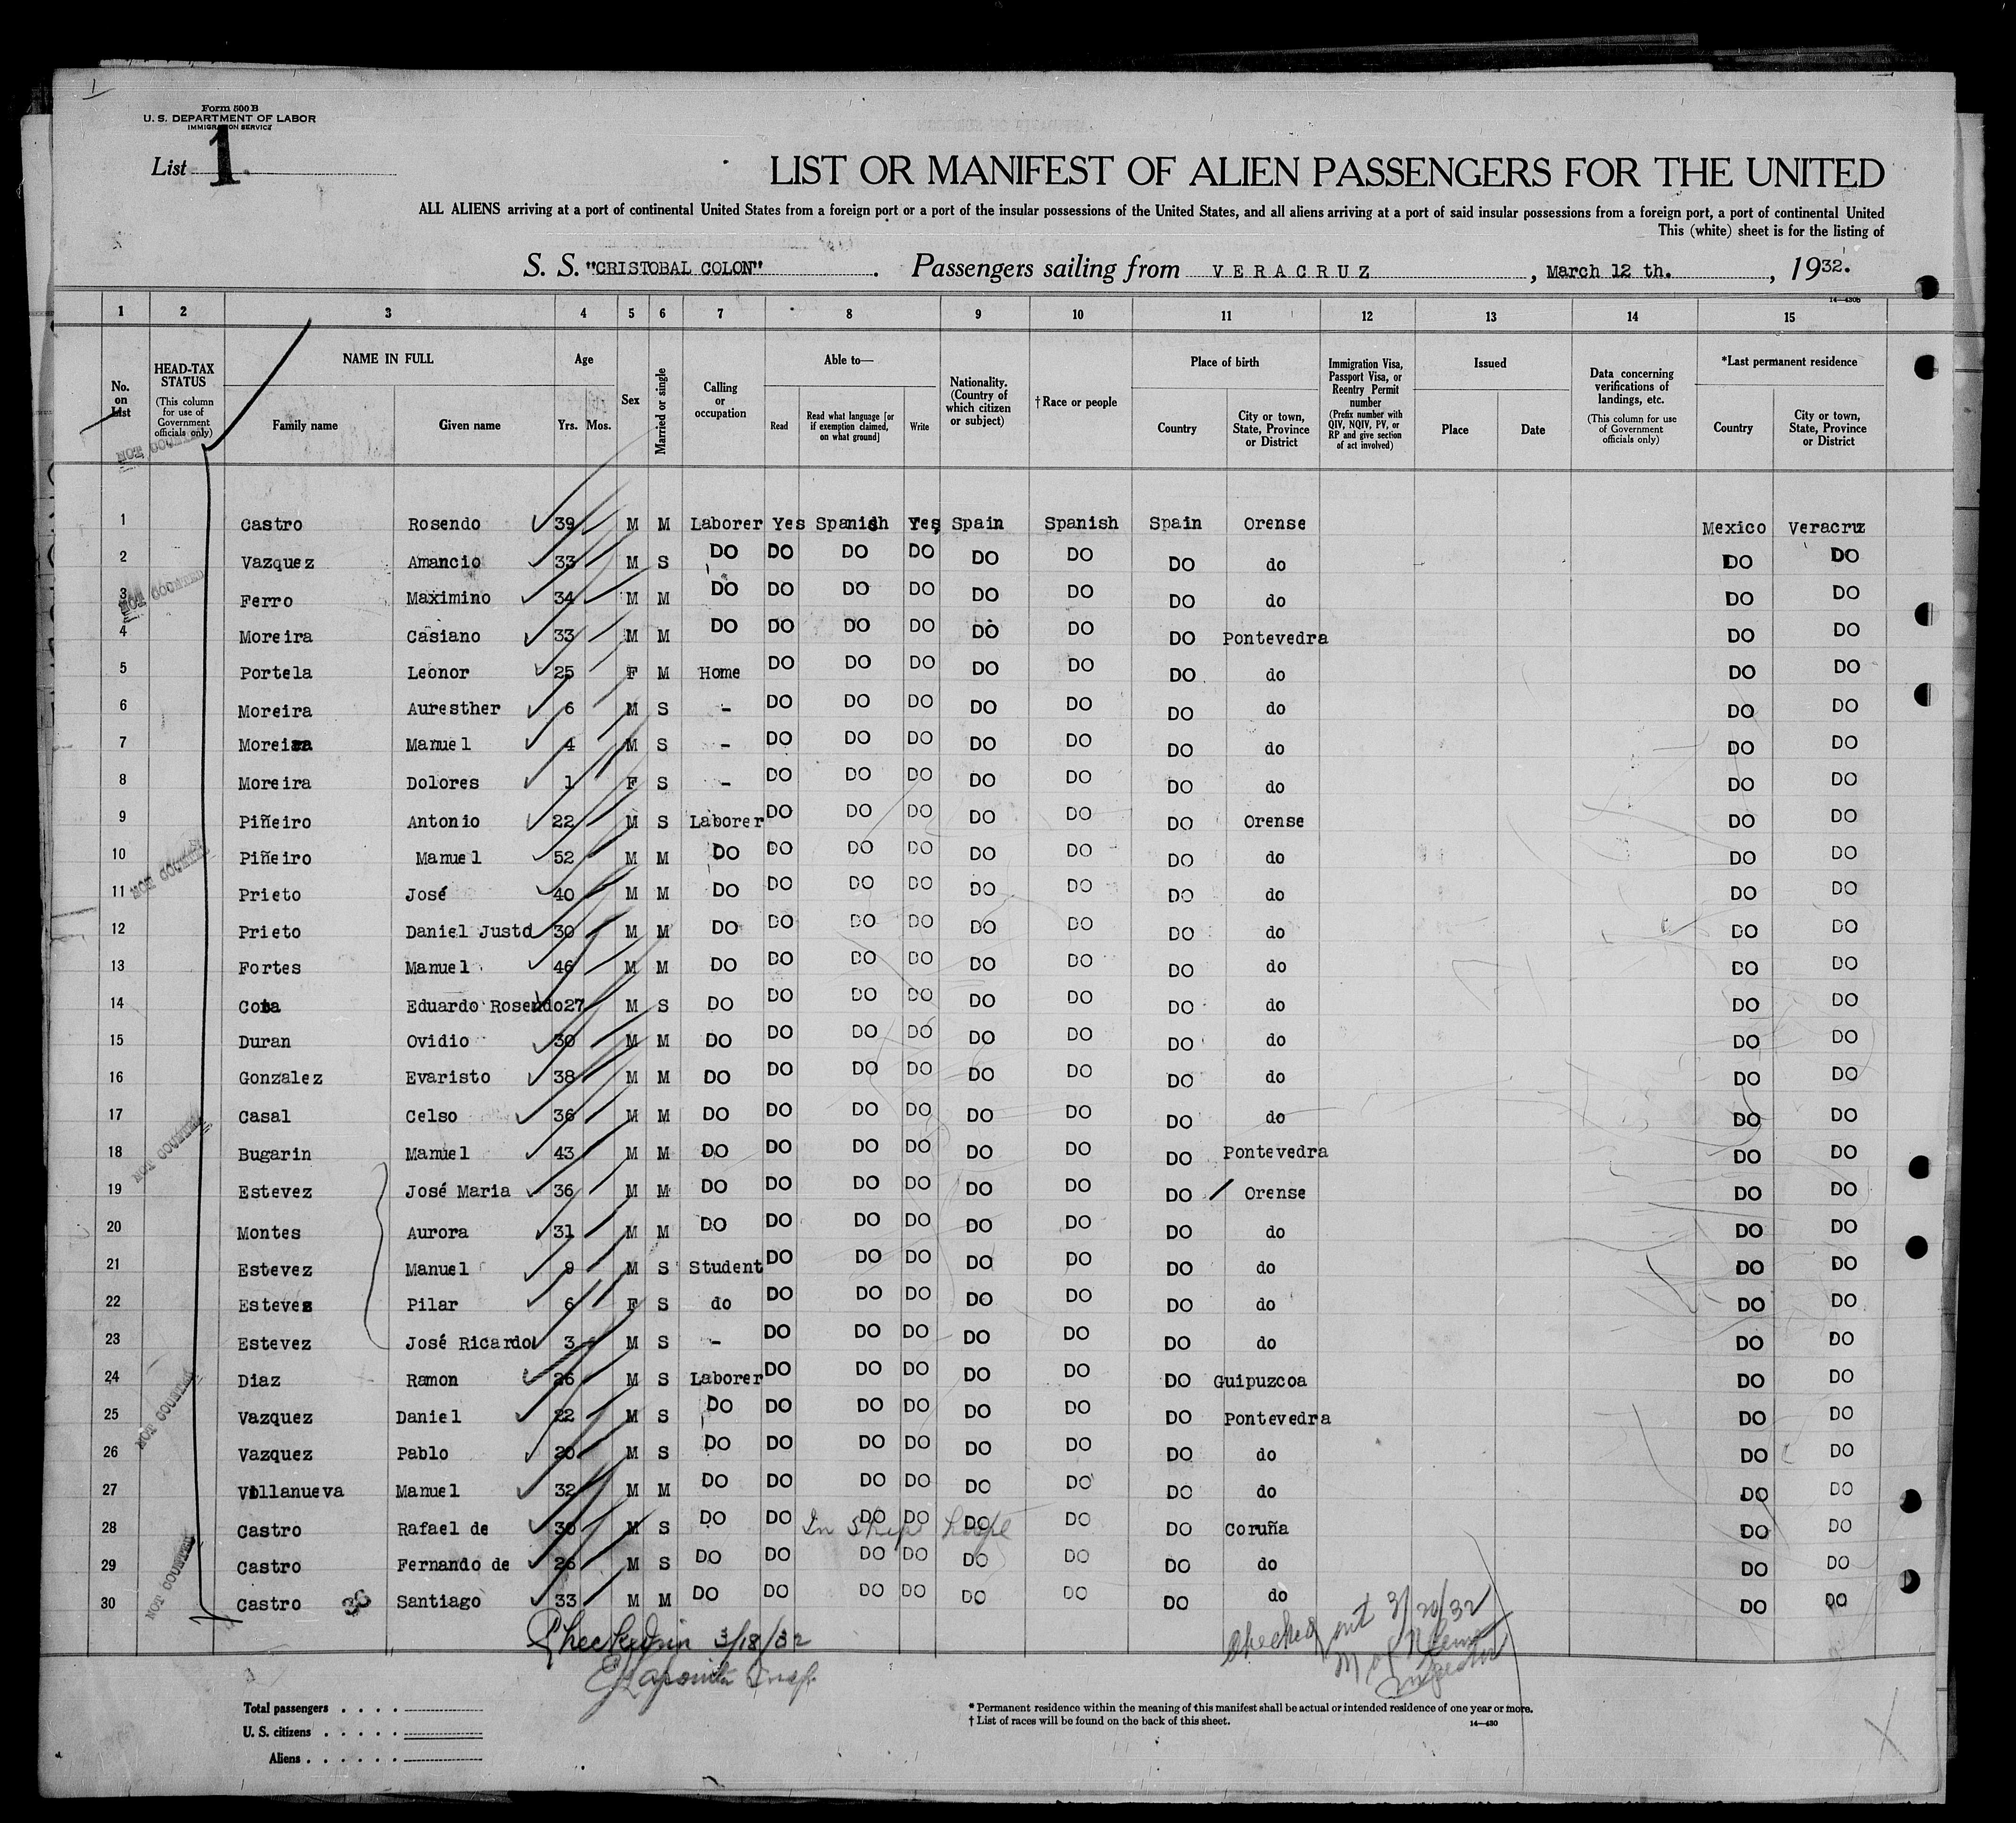 Form 500 B
U. S. DEPARTMENT OF LABOR
IMMIGRATION SERVICE
List 1
LIST OR MANIFEST OF ALIEN PASSENGERS FOR THE UNITED
ALL ALIENS arriving at a port of continental United States from a foreign port or a port of the insular possessions of the United States, and all aliens arriving at a port of said insular possessions from a foreign port, a port of continental United
This (white) sheet is for the listing of
S. S. "CRISTOBAL COLON" . Passengers sailing from VERACRUZ , March 12 th. , 1932.
14—430B
1 2 3 4 5 6 7 8 9 10 11 12 13 14 15
No. on List
HEAD-TAX STATUS (This column for use of Government officials only)
NAME IN FULL Family name Given name
Age Yrs. Mos.
Sex
Married or single
Calling or occupation
Able to— Read Read what language [or if exemption claimed, on what ground] Write
Nationality. (Country of which citizen or subject)
†Race or people
Place of birth Country City or town, State, Province or District
Immigration Visa, Passport Visa, or Reentry Permit number (Prefix number with QIV, NQIV, PV, or RP and give section of act involved)
Issued Place Date
Data concerning verifications of landings, etc. (This column for use of Government officials only)
*Last permanent residence Country City or town, State, Province or District
1 Castro Rosendo 39 M M Laborer Yes Spanish Yes Spain Spanish Spain Orense Mexico Veracruz
2 Vazquez Amancio 33 M S DO DO DO DO DO DO DO do DO DO
3 Ferro Maximino 34 M M DO DO DO DO DO DO DO do DO DO
4 Moreira Casiano 33 M M DO DO DO DO DO DO DO Pontevedra DO DO
5 Portela Leonor 25 F M Home DO DO DO DO DO DO do DO DO
6 Moreira Auresther 6 M S - DO DO DO DO DO DO do DO DO
7 Moreira Manuel 4 M S - DO DO DO DO DO DO do DO DO
8 Moreira Dolores 1 F S - DO DO DO DO DO DO do DO DO
9 Piñeiro Antonio 22 M S Laborer DO DO DO DO DO DO Orense DO DO
10 Piñeiro Manuel 52 M M DO DO DO DO DO DO DO do DO DO
11 Prieto José 40 M M DO DO DO DO DO DO DO do DO DO
12 Prieto Daniel Justo 30 M M DO DO DO DO DO DO DO do DO DO
13 Fortes Manuel 46 M M DO DO DO DO DO DO DO do DO DO
14 Cota Eduardo Rosendo 27 M S DO DO DO DO DO DO DO do DO DO
15 Duran Ovidio 30 M M DO DO DO DO DO DO DO do DO DO
16 Gonzalez Evaristo 38 M M DO DO DO DO DO DO DO do DO DO
17 Casal Celso 36 M M DO DO DO DO DO DO DO do DO DO
18 Bugarin Manuel 43 M M DO DO DO DO DO DO DO Pontevedra DO DO
19 Estevez José Maria 36 M M DO DO DO DO DO DO DO Orense DO DO
20 Montes Aurora 31 M M DO DO DO DO DO DO DO do DO DO
21 Estevez Manuel 9 M S Student DO DO DO DO DO DO do DO DO
22 Estevez Pilar 6 F S do DO DO DO DO DO DO do DO DO
23 Estevez José Ricardo 3 M S - DO DO DO DO DO DO do DO DO
24 Diaz Ramon 26 M S Laborer DO DO DO DO DO DO Guipuzcoa DO DO
25 Vazquez Daniel 22 M S DO DO DO DO DO DO DO Pontevedra DO DO
26 Vazquez Pablo 20 M S DO DO DO DO DO DO DO do DO DO
27 Villanueva Manuel 32 M M DO DO DO DO DO DO DO do DO DO
28 Castro Rafael de 30 M S DO DO DO DO DO DO DO Coruña DO DO
In Ship's hospl
29 Castro Fernando de 26 M S DO DO DO DO DO DO DO do DO DO
30 Castro 30 Santiago 33 M M DO DO DO DO DO DO DO do DO DO
NOT COUNTED
NOT COUNTED
NOT COUNTED
NOT COUNTED
NOT COUNTED
NOT COUNTED
Checked in 3/18/32
Insp.
Checked out 3/20/32
Inspector
Total passengers . . . .
U. S. citizens . . . . .
Aliens . . . . . .
* Permanent residence within the meaning of this manifest shall be actual or intended residence of one year or more.
† List of races will be found on the back of this sheet.
14—430